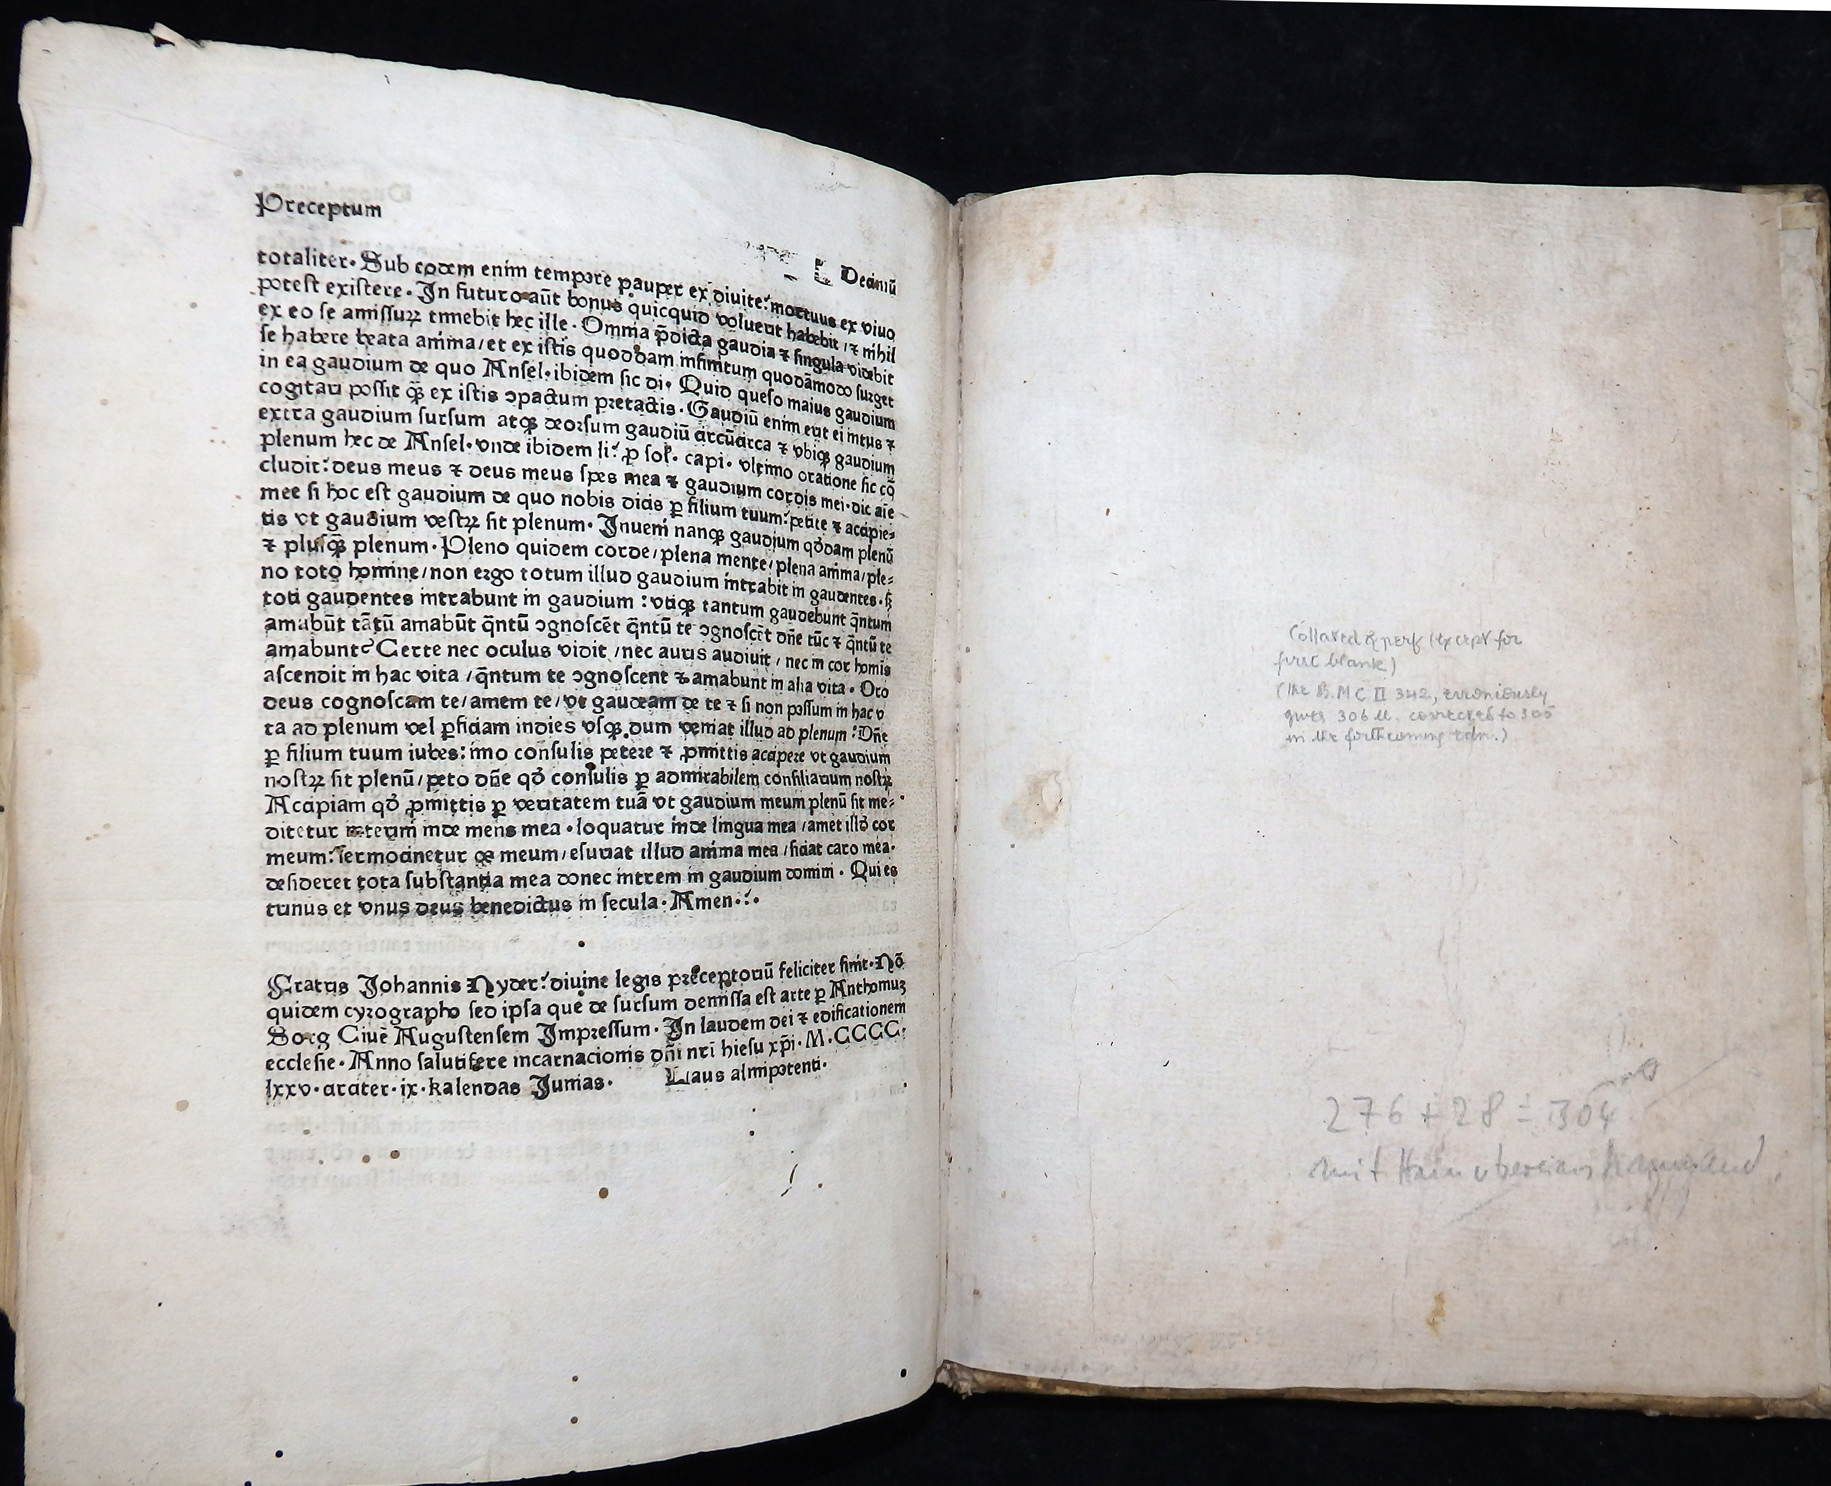 Preceptum
Decimū
totaliter. Sub eodem enim tempore pauper ex diuite: mortuus ex viuo
potest existere. In futuro aūt bonus quicquid voluerit habebit / ⁊ nihil
ex eo se amissuꝝ timebit hec ille. Omnia p̄dicta gaudia ⁊ singula videbit
se habere beata anima / et ex istis quoddam infinitum quodāmodo surget
in ea gaudium de quo Ansel. ibidem sic di. Quid queso maius gaudium
cogitari possit qꝫ̄ ex istis ꝯpactum pretactis. Gaudiū enim erit ei intus ⁊
extra gaudium sursum atqꝫ deorsum gaudiū circūcirca ⁊ vbiqꝫ gaudium
plenum hec de Ansel. vnde ibidem li: ꝓ sol. capi. vltimo oratione sic cō
cludit: deus meus ⁊ deus meus spes mea ⁊ gaudium cordis mei. dic aīe
mee si hoc est gaudium de quo nobis dicis ꝑ filium tuum: petite ⁊ accipie=
tis vt gaudium vestꝝ sit plenum. Inueni nanqꝫ gaudium qd̄dam plenū
⁊ plusqꝫ̄ plenum. Pleno quidem corde / plena mente / plena anima / ple=
no toto homine / non ergo totum illud gaudium intrabit in gaudentes. sꝫ
toti gaudentes intrabunt in gaudium : vtiqꝫ tantum gaudebunt q̄ntum
amabūt tātū amabūt q̄ntū ꝯgnoscēt q̄ntū te ꝯgnoscēt dn̄e tūc ⁊ q̄ntū te
amabunt? Certe nec oculus vidit / nec auris audiuit / nec in cor homīs
ascendit in hac vita / q̄ntum te ꝯgnoscent ⁊ amabunt in alia vita. Oro
deus cognoscam te / amem te / vt gaudeam de te ⁊ si non possum in hac v
ta ad plenum vel ꝑficiam indies vsqꝫ dum veniat illud ad plenum : Dn̄e
ꝑ filium tuum iubes : imo consulis petere ⁊ ꝓmittis accipere vt gaudium
nostꝝ sit plenū / peto dn̄e qd̄ consulis ꝑ admirabilem consiliarium nostꝝ
Accipiam qd̄ ꝓmittis ꝑ veritatem tuā vt gaudium meum plenū sit me=
ditetur interim inde mens mea . loquatur inde lingua mea / amet illd̄ cor
meum: sermocinetur os meum / esuriat illud anima mea / siciat caro mea.
desideret tota substantia mea donec intrem in gaudium domini . Qui es
trinus et vnus deus benedictus in secula . Amen.:.
Fratris Johannis Nyder: diuine legis preceptoriū feliciter finit. Nō
quidem cyrographo sed ipsa que de sursum demissa est arte ꝑ Anthoniuꝫ
Sorg Ciuē Augustensem Impressum. In laudem dei ⁊ edificationem
ecclesie. Anno salutifere incarnacionis dn̄i nr̄i hiesu xp̄i. M.CCCC.
lxxv. circiter. ix. kalendas Junias. Laus almipotenti.
Collated & perf (except for
first blank)
(the B.M.C II 342, erroniously
gives 306 ll. corrected to 305
in the forthcoming edn.)
276 + 28 = 304
mit Hain übereins